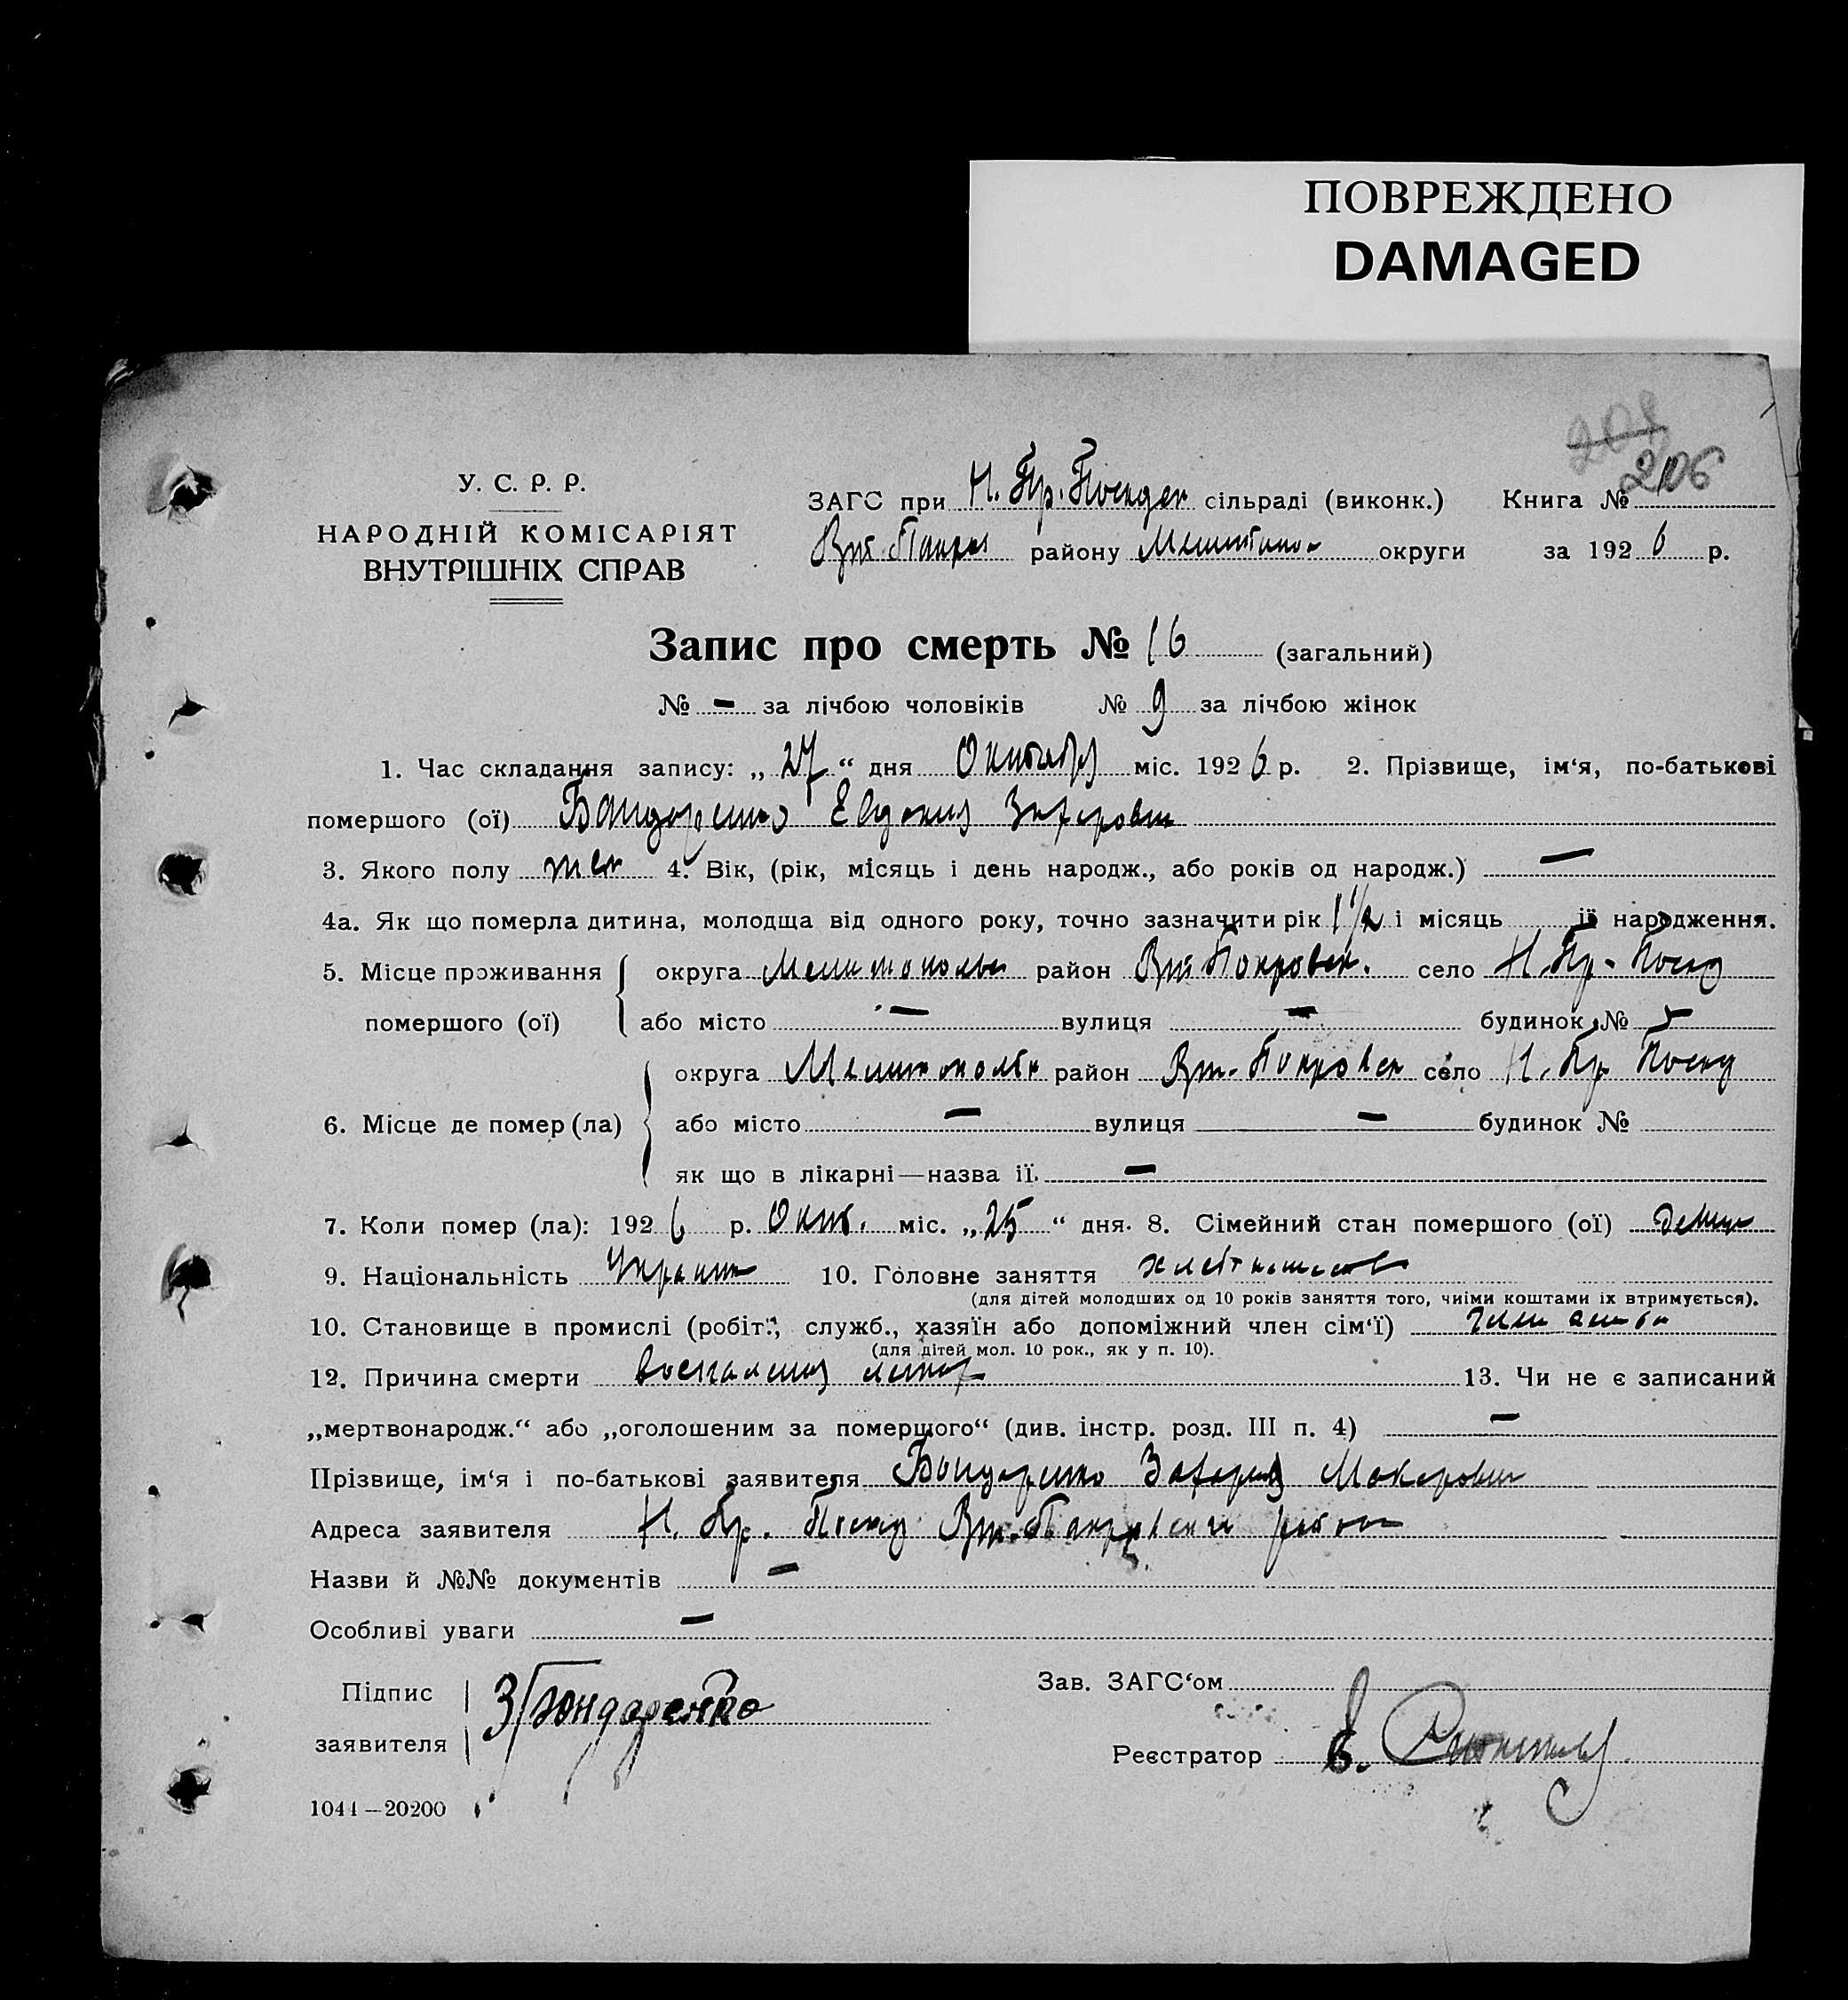 ПОВРЕЖДЕНО
DAMAGED
206
У. С. Р. Р.
НАРОДНІЙ КОМІСАРІЯТ
ВНУТРІШНІХ СПРАВ
ЗАГС при Н. Пр. сільраді (виконк.) Книга №
району округи за 1926 р.
Запис про смерть № 16 (загальний)
№ – за лічбою чоловіків № 9 за лічбою жінок
1. Час складання запису: „27“ дня Октября міс. 1926 р. 2. Прізвище, ім‘я, по-батькові
помершого (ої) Бондаренко Евдокия
3. Якого полу жен 4. Вік, (рік, місяць і день народж., або років од народж.) —
4а. Як що померла дитина, молодща від одного року, точно зазначити рік 1 1/2 і місяць її народження.
5. Місце проживання округа район Вт. Покровск. село Н. Пр.
помершого (ої) або місто — вулиця — будинок №
округа район Вт. Покровск село Н. Пр.
6. Місце де помер (ла) або місто — вулиця — будинок №
як що в лікарні—назва ії. —
7. Коли помер (ла): 1926 р. Окт. міс. „25“ дня. 8. Сімейний стан помершого (ої)
9. Національність 10. Головне заняття
(для дітей молодших од 10 років заняття того, чиїми коштами їх втримується).
10. Становище в промислі (робіт., служб., хазяїн або допоміжний член сім‘ї)
(для дітей мол. 10 рок., як у п. 10).
12. Причина смерти воспаление легких 13. Чи не є записаний
„мертвонародж.“ або „оголошеним за помершого“ (див. інстр. розд. III п. 4) —
Прізвище, ім‘я і по-батькові заявителя Бондаренко Захарий Макарович
Адреса заявителя Н. Пр. района
Назви й №№ документів —
Особливі уваги —
Підпис
заявителя З Бондаренко
Зав. ЗАГС‘ом
Реєстратор
1044—20200